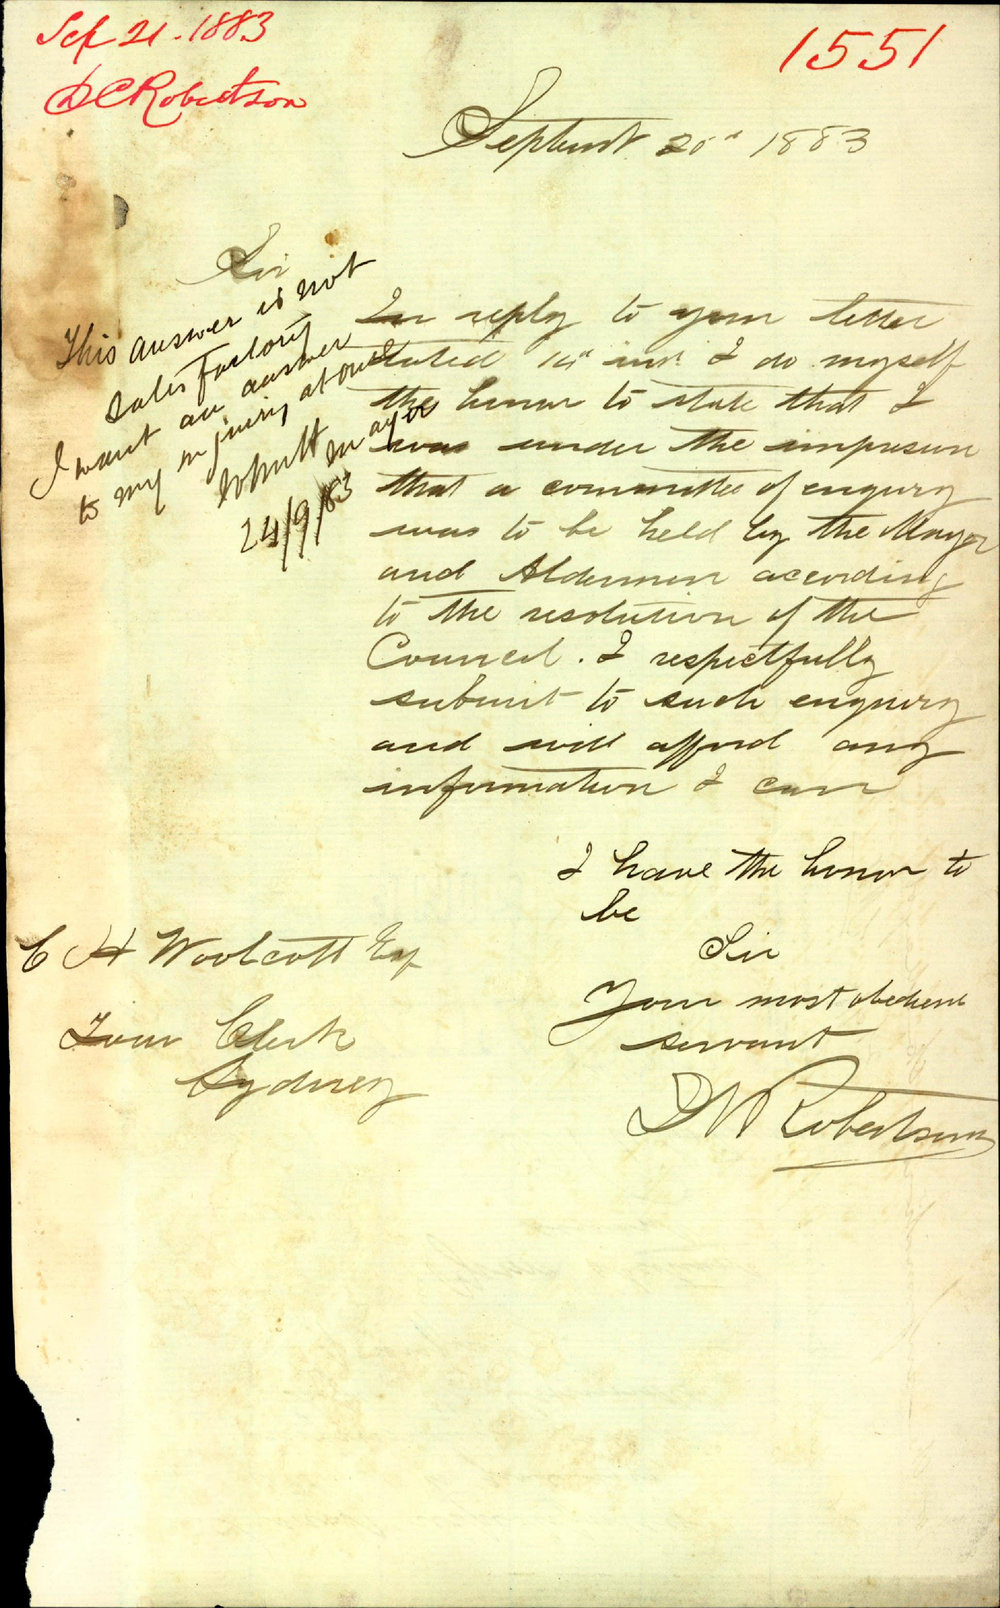 Sep 21. 1883
D C Robertson
1551
Septemr 20th 1883
Sir
This answer is not
satisfactory
I want an answer
to my enquiry at once
Mayor
24/9/83
In reply to your letter
dated inst I do myself
the honor to state that I
was under the impression
that a committee of enquiry
was to be held by the Mayor
and Aldermen according
to the resolution of the
Council. I respectfully
submit to such enquiry
and will afford any
information I can
I have the honor to
be
Sir
Your most obedient
servant
Robertson
C H Woolcott Esq
Town Clerk
Sydney